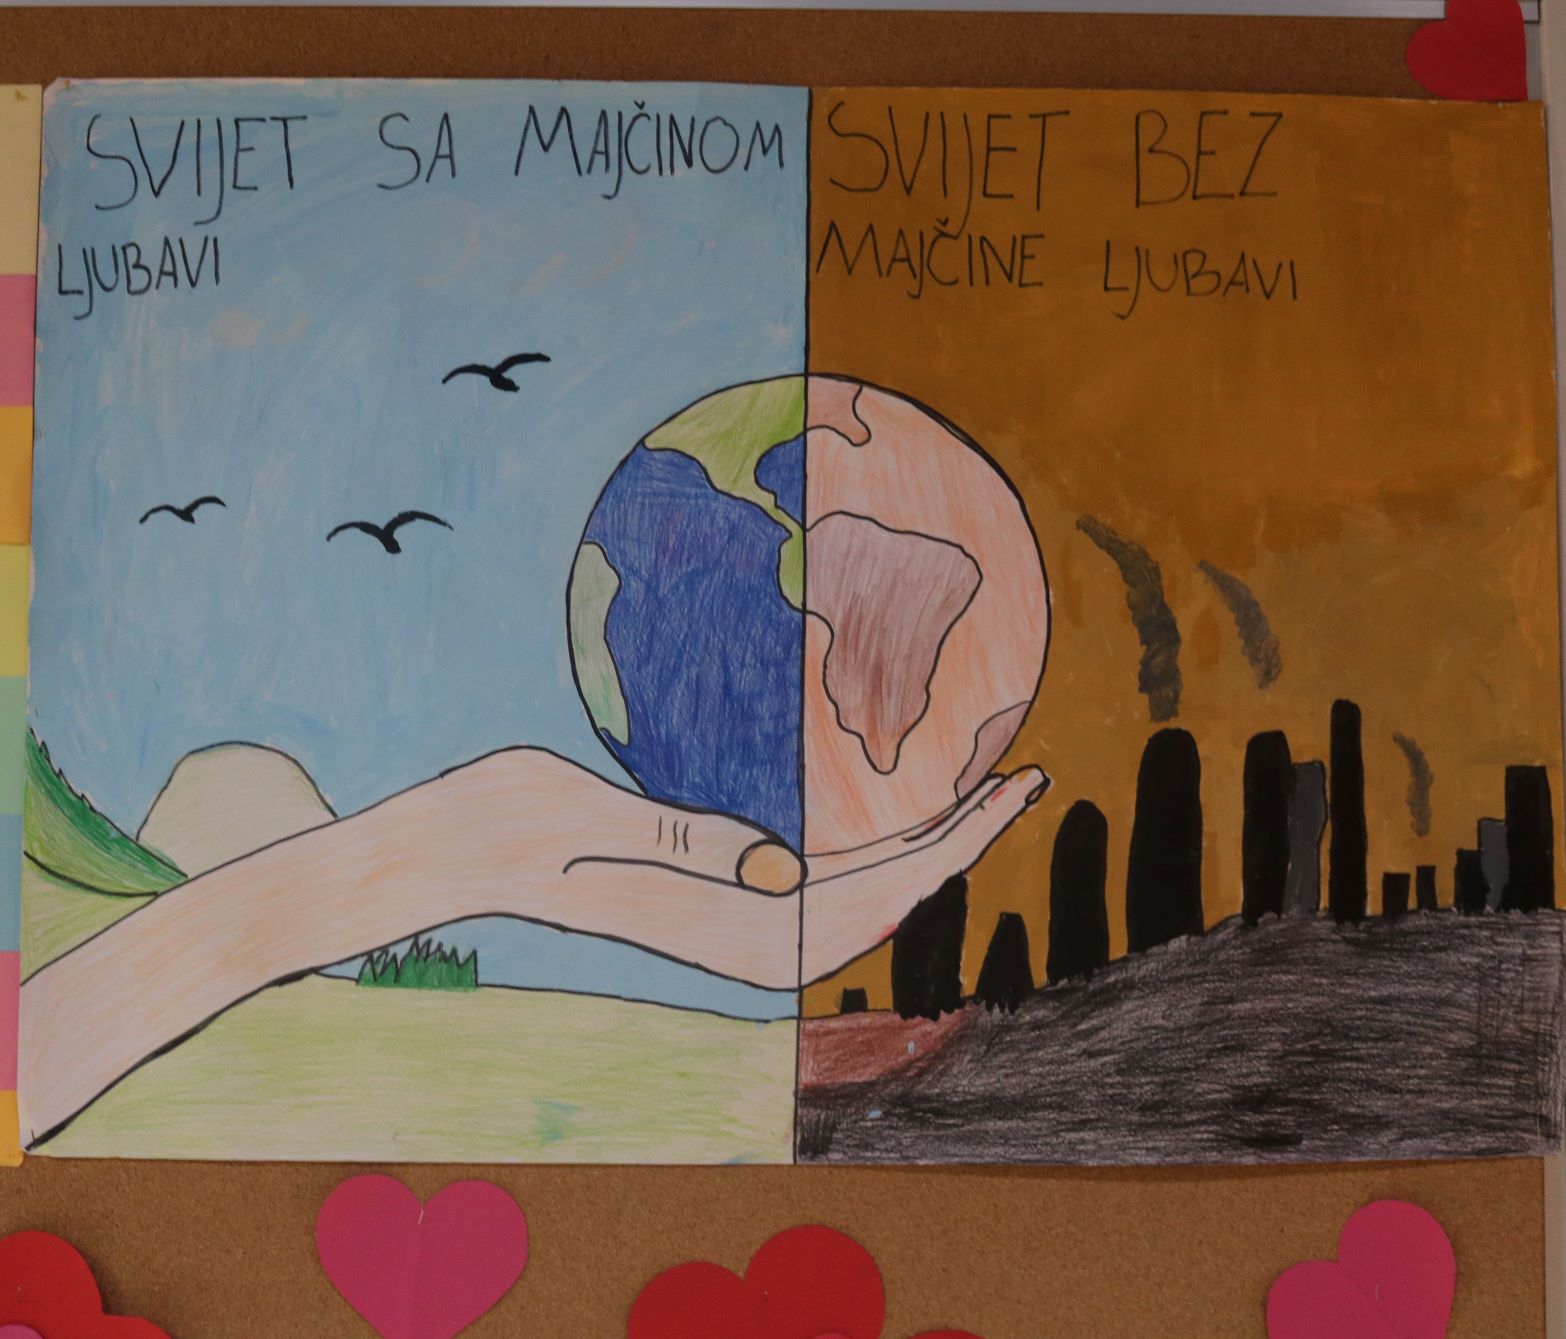 SVIJET SA MAJČINOM
LJUBAVI
SVIJET BEZ
MAJČINE LJUBAVI